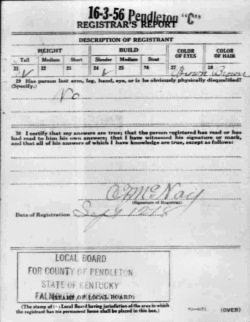 16-3-56 Pendleton "C"
REGISTRAR'S REPORT
DESCRIPTION OF REGISTRANT
HEIGHT BUILD COLOR OF EYES COLOR OF HAIR
Tall Medium Short Slender Medium Stout
21 22 23 24 25 26 27 28
√ √ Brown Brown
29 Has person lost arm, leg, hand, eye, or is he obviously physically disqualified?
(Specify.)
No
30 I certify that my answers are true; that the person registered has read or has
had read to him his own answers; that I have witnessed his signature or mark,
and that all of his answers of which I have knowledge are true, except as follows:
(Signature of Registrar)
Date of Registration Sept 12
LOCAL BOARD
FOR COUNTY OF PENDLETON
STATE OF KENTUCKY
(STAMP OF LOCAL BOARD)
(The stamp of the Local Board having jurisdiction of the area in which
the registrant has his permanent home shall be placed in this box.)
(OVER)